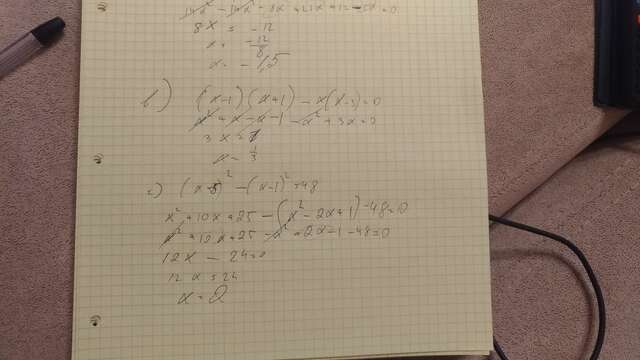 14x² - 14x² - 8x + 21x + 12 - 5x = 0
8x = -12
x = -12/8
x = -1,5
b) (x-1)(x+1) - x(x-3) = 0
x² + x - x - 1 - x² + 3x = 0
3x = 1
x = 1/3
c) (x+5)² - (x-1)² = 48
x² + 10x + 25 - (x² - 2x + 1) - 48 = 0
x² + 10x + 25 - x² + 2x - 1 - 48 = 0
12x - 24 = 0
12x = 24
x = 2